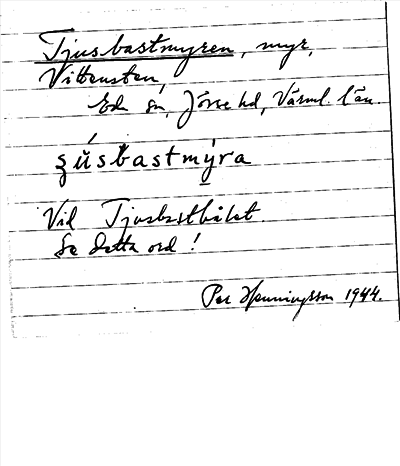 Tjusbastmyren, myr,
Vittensten,
Eda sn, Jösse hd, Värml. län.
şŭ́sbastmýra
Vid Tjusbastbålet.
Se detta ord!
Per Henningsson 1944.